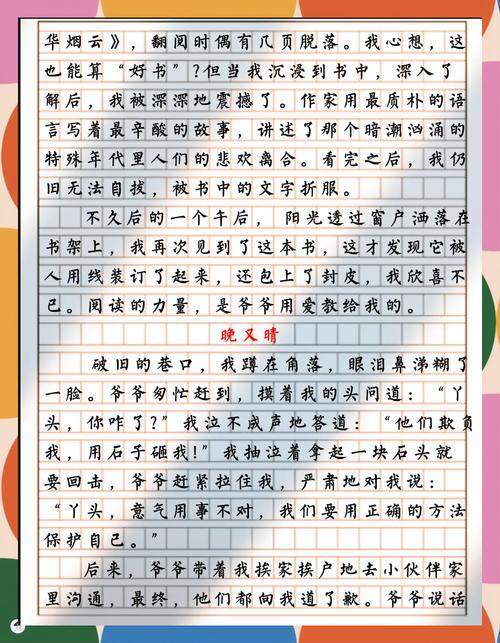 华烟云》，翻阅时偶有几页脱落。我心想，这
也能算“好书”?但当我沉浸到书中，深入了
解后，我被深深地震撼了。作家用最质朴的语
言写着最辛酸的故事，讲述了那个暗潮汹涌的
特殊年代里人们的悲欢离合。看完之后，我仍
旧无法自拔，被书中的文字折服。
不久后的一个午后，阳光透过窗户洒落在
书架上，我再次见到了这本书，这才发现它被
人用线装订了起来，还包上了封皮，我欣喜不
已。阅读的力量，是爷爷用爱教给我的。
晚又晴
破旧的巷口，我蹲在角落，眼泪鼻涕糊了
一脸。爷爷匆忙赶到，摸着我的头问道：“丫
头，你咋了?”我泣不成声地答道：“他们欺负
我，用石子砸我!”我抽泣着拿起一块石头就
要回击，爷爷赶紧拉住我，严肃地对我说：
“丫头，意气用事不对，我们要用正确的方法
保护自己。”
后来，爷爷带着我挨家挨户地去小伙伴家
里沟通，最终，他们都向我道了歉。爷爷说话